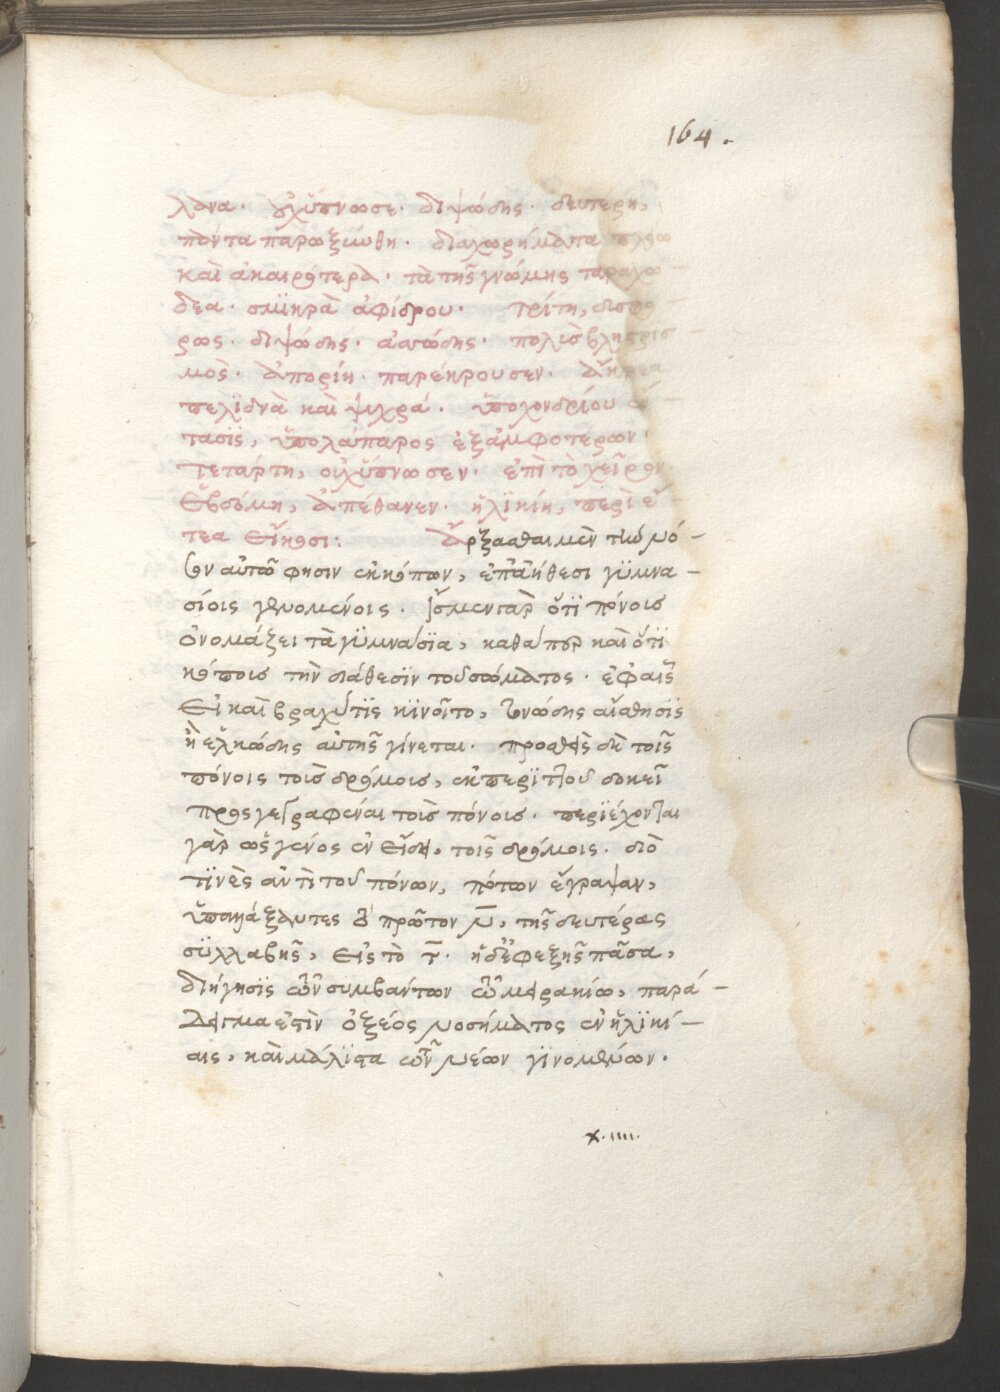 164.
λανα· οὐχ ὕπνωσε· διψώδης· δευτέρη,
πάντα παρωξύνθη· διαχωρήματα πλέω
καὶ ἀκαιρότερα· τὰ τῆς γνώμης ταραχώ
δεα· σμικρὰ ἀφίδρου· τρίτη, δυσφό
ρως· διψώδης· ἀσώδης· πολὺς βληστρισ
μὸς· ἀπορίη· παρέκρουσεν· ἄκρεα
πελιδνὰ καὶ ψυχρά· ὑποχονδρίου ἔν
τασις, ὑπολάπαρος ἐξ ἀμφοτέρων·
τετάρτη, οὐχ ὕπνωσεν· ἐπὶ τὸ χεῖρον·
ἑβδόμη, ἀπέθανεν· ἡλικίη, περὶ ἔ
τεα εἴκοσι: ἄρξασθαι μὲν τὴν νό-
σον αὐτῷ φησιν ἐκ κόπων, ἐπ' ἀήθεσι γυμνα-
σίοις γενομένοις· ἴσμεν γὰρ ὅτι πόνους
ὀνομάζει τὰ γυμνάσια, καθάπερ καὶ ὅτι
κόπους τὴν διάθεσιν τοῦ σώματος· ἐφ' αἷς
εἰ καὶ βραχύ τις κινοῖτο, ὀνώδης αἴσθησις
ἢ ἑλκώδης αὐτῆς γίνεται· προσθεὶς δὲ τοῖς
πόνοις τοὺς δρόμους, ἐκ περιττοῦ δοκεῖ
προσγεγραφέναι τοὺς πόνους· περιέχονται
γὰρ ὡς γένος ἐν εἴδει, τοῖς δρόμοις· διό
τινὲς ἀντὶ τοῦ πόνων, πότων ἔγραψαν,
ὑπαλλάξαντες τὸ πρῶτον ν̅, τῆς δευτέρας
συλλαβῆς, εἰς τὸ τ̅· ἡ δ' ἐφεξῆς πᾶσα,
διήγησις τῶν συμβάντων τῷ μειρακίῳ, παρά-
δειγμα ἐστὶν ὀξέος νοσήματος ἐν ἡλικί-
αις, καὶ μάλιστα τῶν νέων γινομένων·
χ·ιιιι·